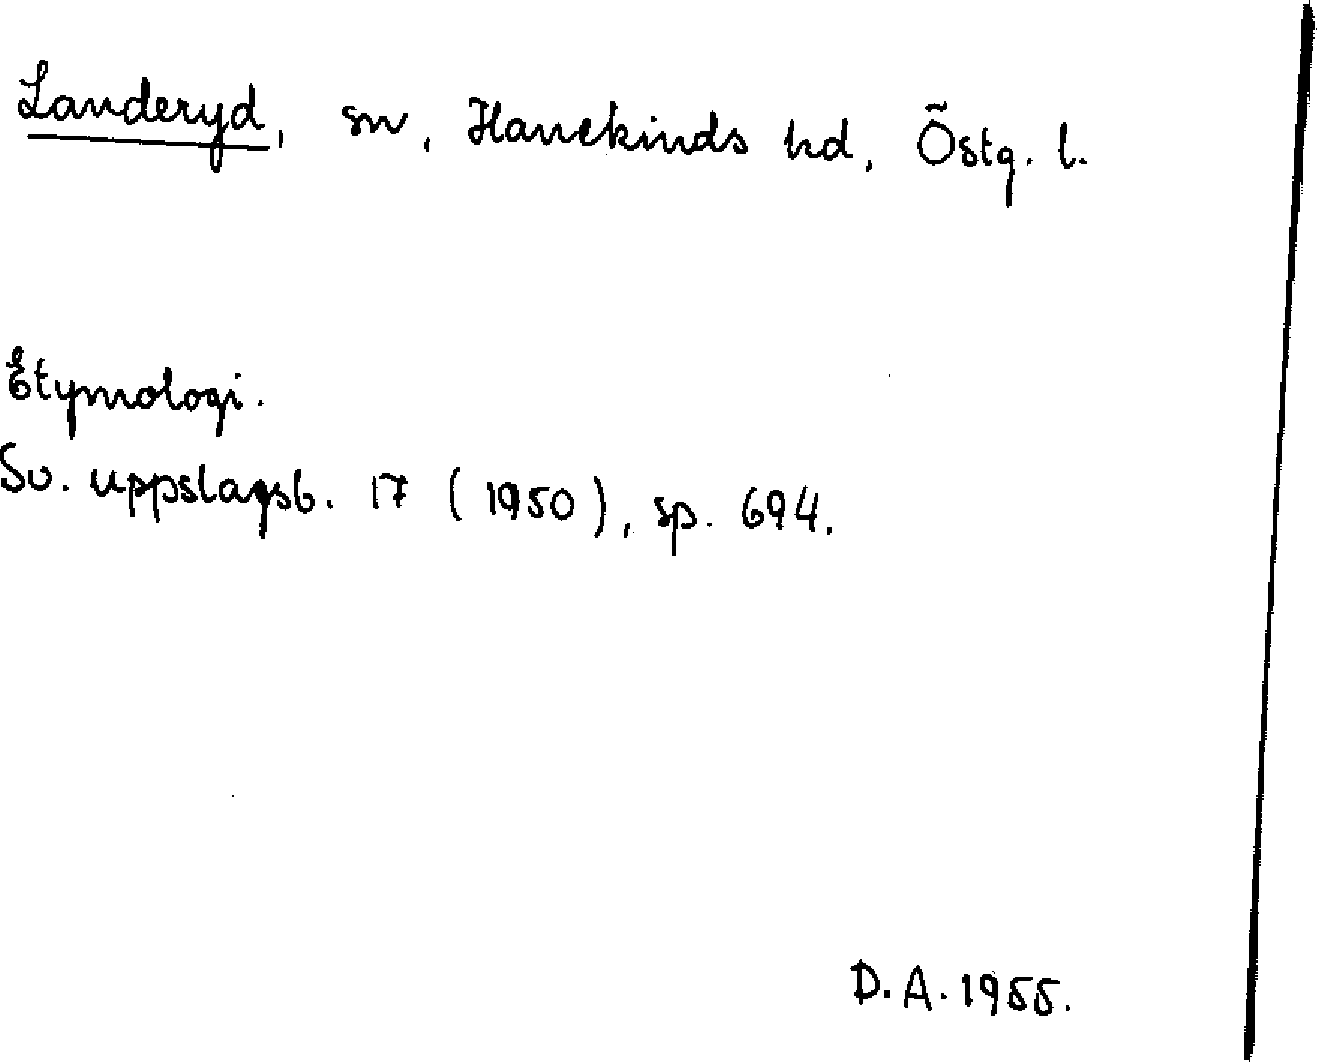 Landeryd, sn, Hanekinds hd, Östg. l.
Etymologi.
Sv. uppslagsb. 17 (1950), sp. 694.
D. A. 1955.